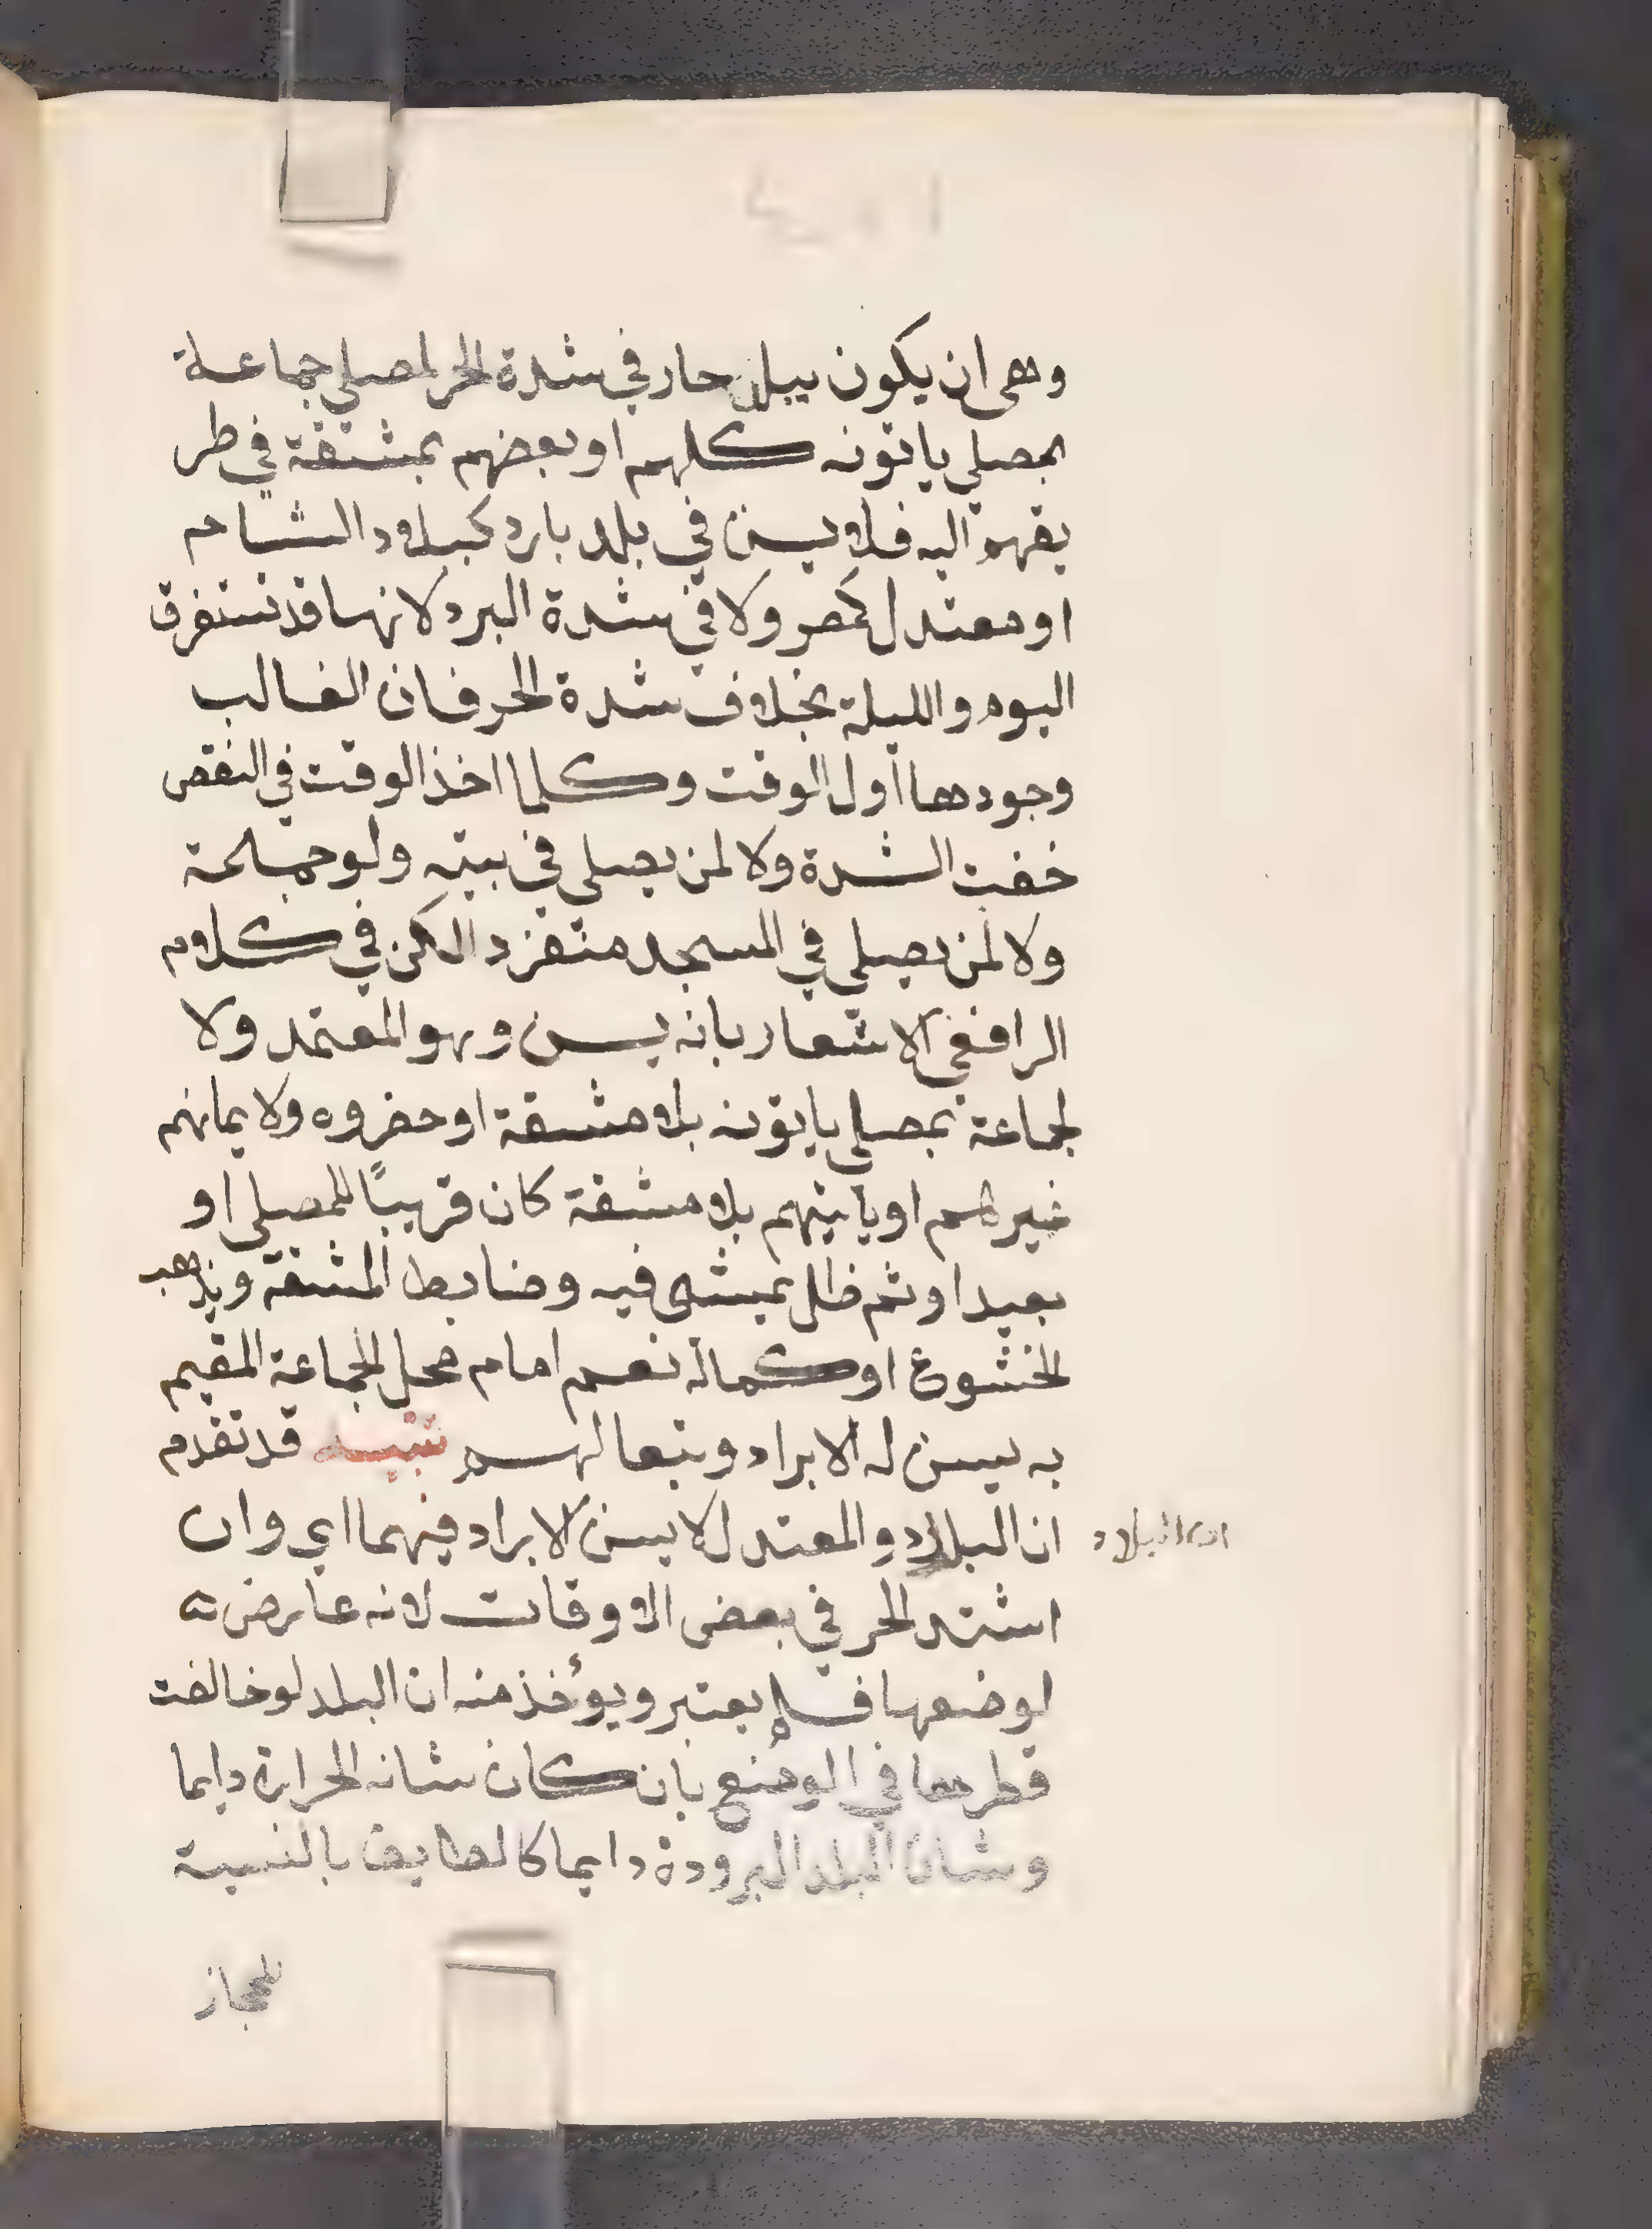 وهى ان يكون ببلد حار في شدة الحر لمصلي جماعة
بمصلي ياتونه كلهم او بعضهم بمشقة في طر
يقهم اليه فلا يسن في بلد بارد كبلاد الشام
او معتدل كمصر ولا في شدة البرد لانها قد تستغرق
اليوم والليلة بخلاف شدة الحر فان الغالب
وجودها اول الوقت وكلما اخذ الوقت في النقص
خفت الشدة ولا لمن يصلي في بيته ولو جماعة
ولا لمن يصلي في المسجد منفردا لكن في كلام
الرافعي الاشعار بانه يسن وهو المعتمد ولا
لجماعة بمصلي ياتونه بلا مشقة او حضروه ولا ياتهم
غيرهم او ياتيهم بلا مشقة كان قريبًا للمصلي او
بعيدا وثم ظل يمشى فيه وضابط المشقة ويذهب
الخشوع او كماله نعم امام محل الجماعة المقيم
به يسن له الابراد وتبعا لهم تنبيه قد تقدم
ان البلاد والمعتدل لا يسن الابراد فيهما اي وان
اشتد الحر في بعض الاوقات لانه عارض
لوضعها فلا يعتبر ويؤخذ منه ان البلد لو خالفت
قطرها في الوضع بان كان شانه الحرارة دايما
وشان البلد البرودة دايما كالطايف بالنسبة
للحجاز